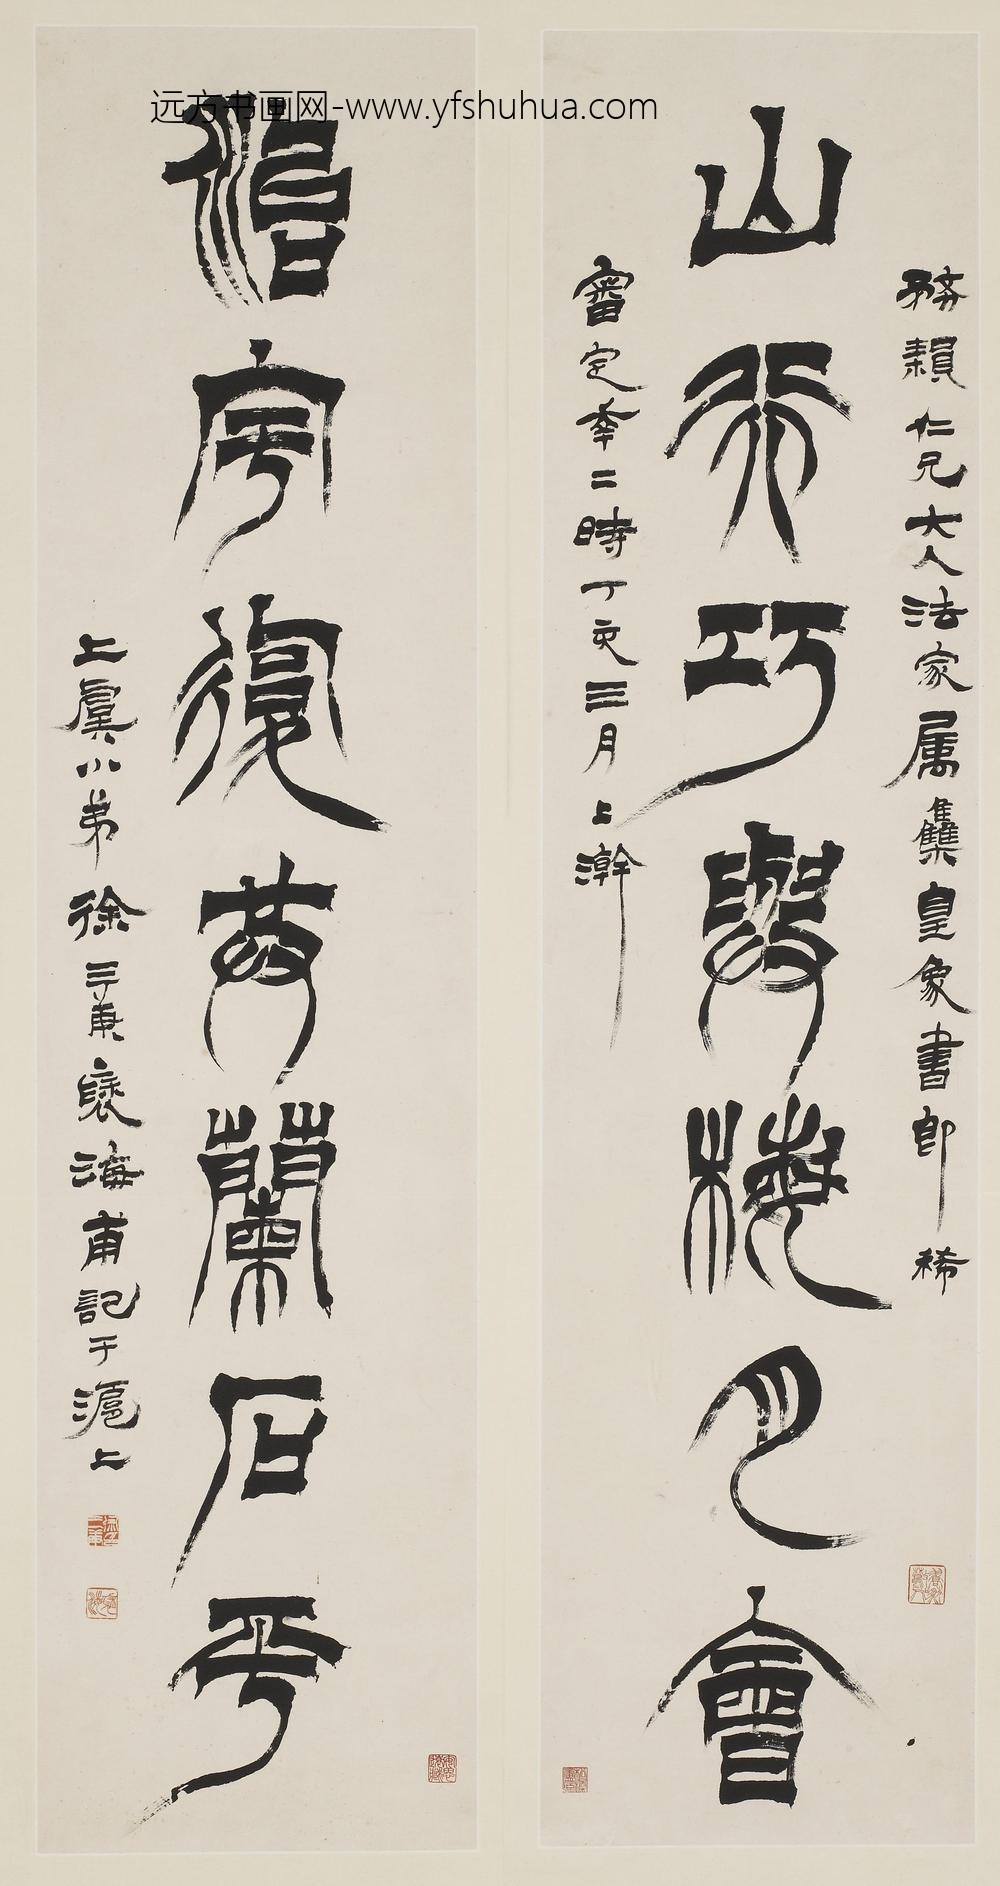 远方书画网-www.yfshuhua.com
仁兄大人法家属集皇象書即稀
山行巧與梅月會
審定幸二時丁亥三月上澣
宇復共蘭石平
上虞小弟徐三庚褎海甫記于滬上